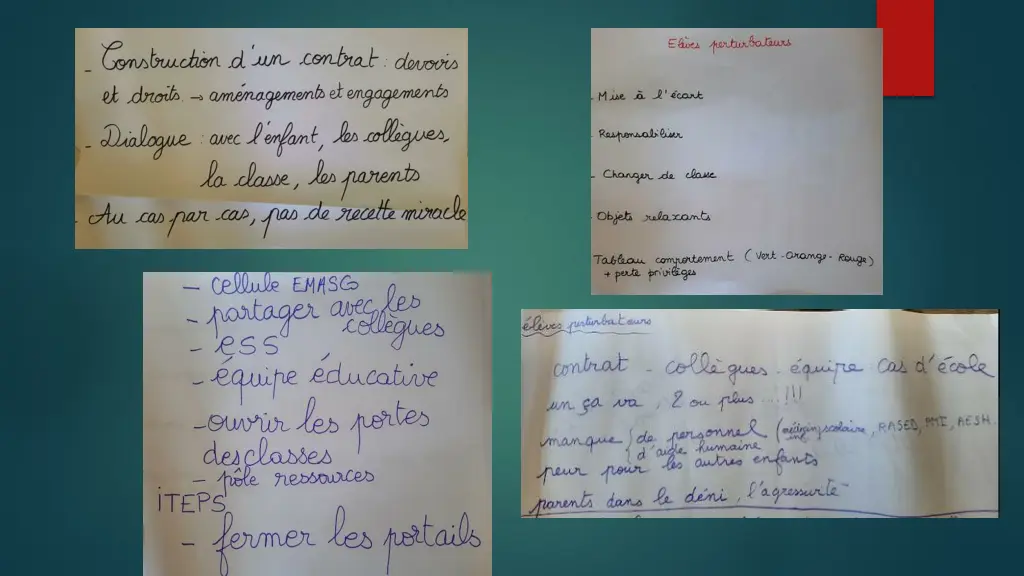 - Construction d'un contrat : devoirs
et droits. → aménagements et engagements
- Dialogue : avec l'enfant, les collègues,
la classe, les parents
- Au cas par cas, pas de recette miracle
Elèves perturbateurs
- Mise à l'écart
- Responsabiliser
- Changer de classe
- Objets relaxants
Tableau comportement (Vert - Orange - Rouge)
→ perte privilèges
- cellule EMASCO
- partager avec les
collègues
- ESS
- équipe éducative
- ouvrir les portes
des classes
- pôle ressources
ITEPS
- fermer les portails
élèves perturbateurs
contrat - collègues - équipe : cas d'école
un ça va, 2 ou plus ... !!!
manque { de personnel ( scolaire, RASED, PMI, AESH.
{ d'aide humaine
peur pour les autres enfants
parents dans le déni, l'agressivité